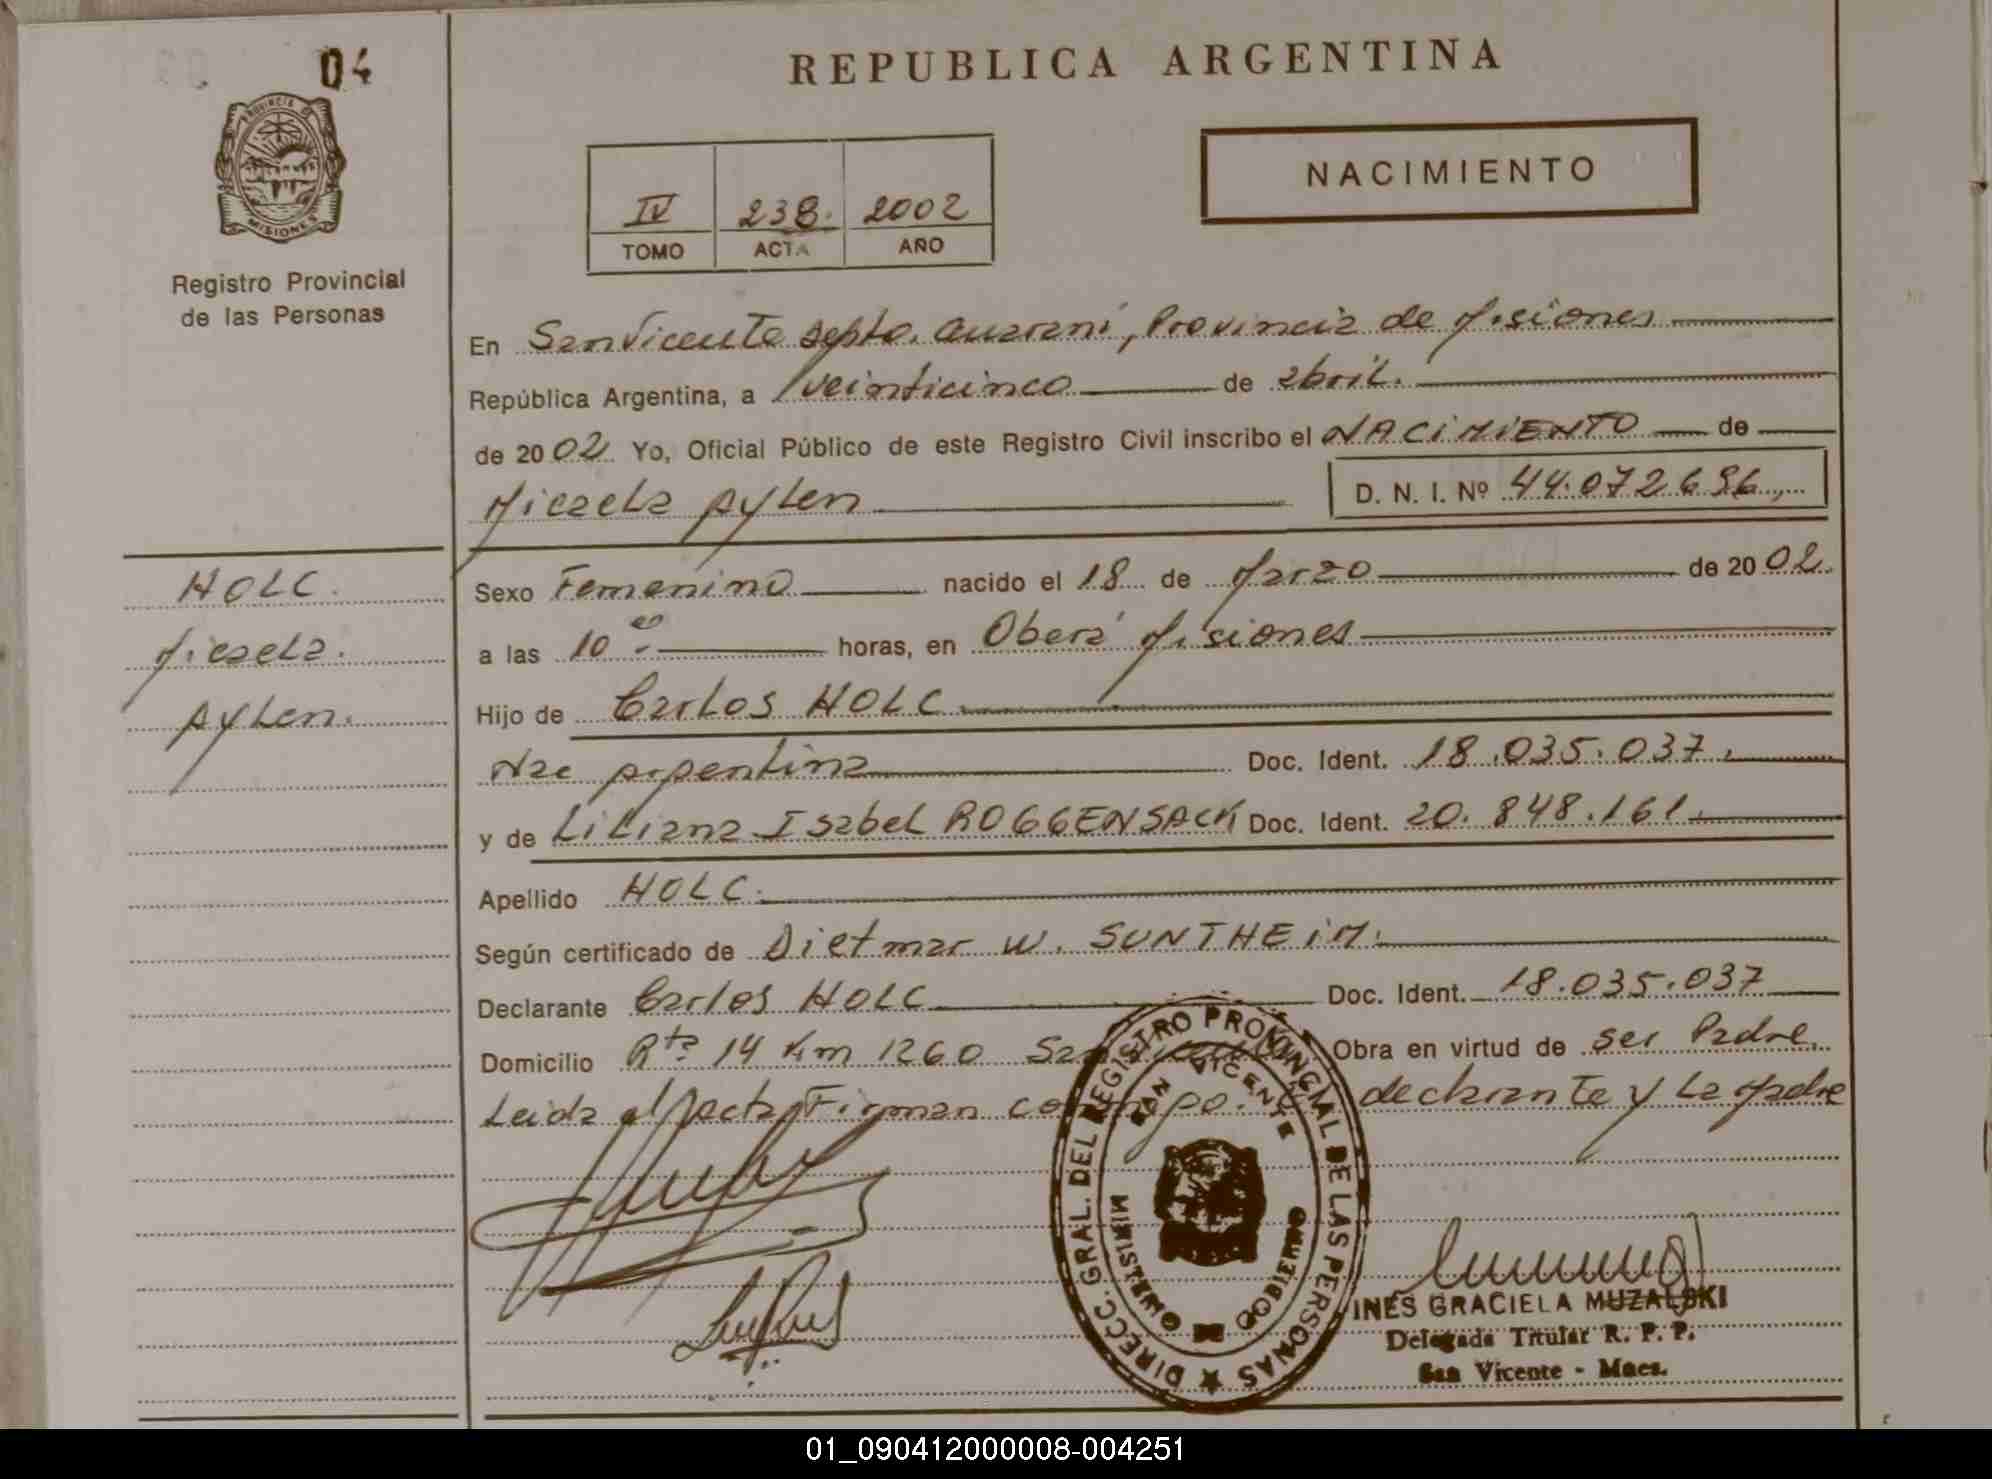 04
PROVINCIA DE
MISIONES
Registro Provincial
de las Personas
REPUBLICA ARGENTINA
NACIMIENTO
IV 238. 2002
TOMO ACTA AÑO
En San Vicente Depto. Guaraní, Provincia de Misiones
República Argentina, a veinticinco de abril.
de 2002 Yo, Oficial Público de este Registro Civil inscribo el NACIMIENTO de
Micaela Aylen D. N. I. Nº 44.072.696
HOLC.
Micaela.
Aylen.
Sexo Femenino nacido el 18 de Marzo de 2002.
a las 10 horas, en Oberá Misiones
Hijo de Carlos HOLC
Nac Argentina Doc. Ident. 18.035.037.
y de Liliana Isabel ROGGENSACK Doc. Ident. 20.848.161.
Apellido HOLC.
Según certificado de Dietmar W. SUNTHEIM.
Declarante Carlos HOLC Doc. Ident. 18.035.037
Domicilio Rta 14 Km 1260 San Vicente Obra en virtud de ser Padre.
Leida el Acta Firman conmigo. El declarante y La Madre
DIRECC. GRAL. DEL REGISTRO PROVINCIAL DE LAS PERSONAS
SAN VICENTE
MINISTERIO DE GOBIERNO
INES GRACIELA MUZALSKI
Delegada Titular R. P. P.
San Vicente - Mnes.
01_090412000008-004251